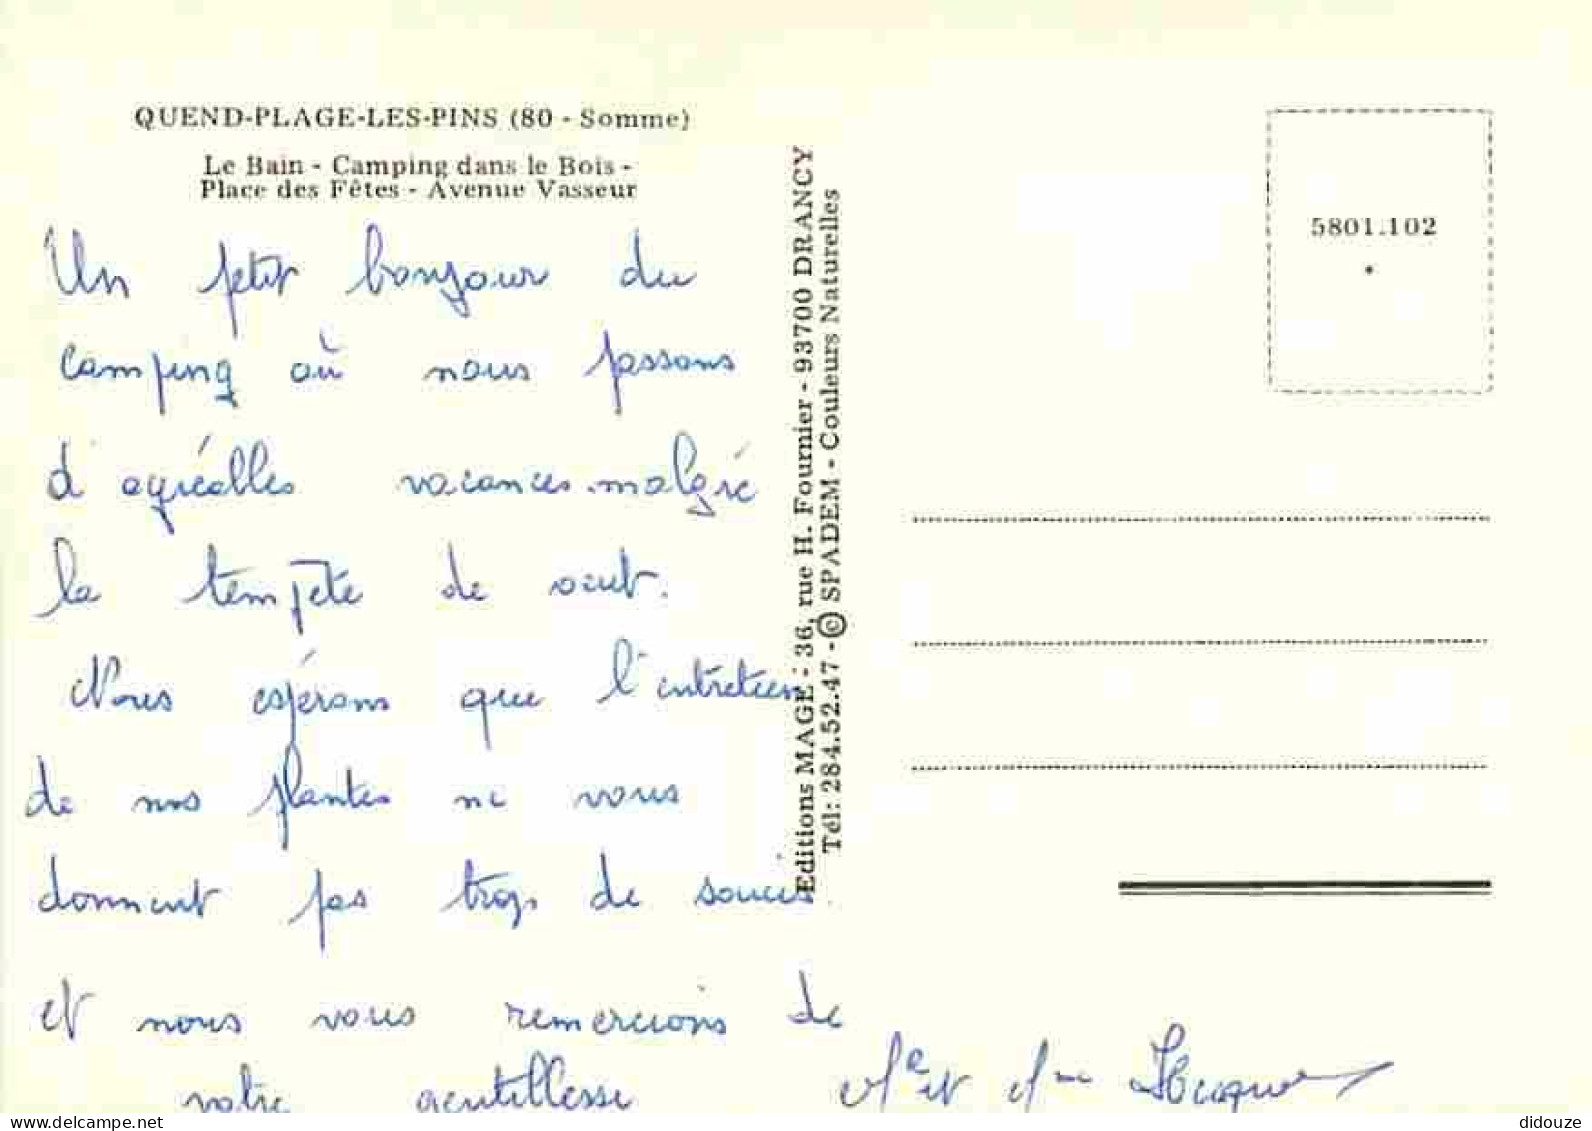 QUEND-PLAGE-LES-PINS (80 - Somme)
Le Bain - Camping dans le Bois -
Place des Fêtes - Avenue Vasseur
Un petit bonjour du
camping où nous passons
d'agréables vacances malgré
la tempête de vent.
Nous espérons que l'entretien
de nos plantes ne vous
donnent pas trop de soucis.
et nous vous remercions de
votre gentillesse
Editions MAGE : 36, rue H. Fournier - 93700 DRANCY
Tél: 284.52.47 - © SPADEM - Couleurs Naturelles
5801.102
Mr et Mme
delcampe.net
didouze